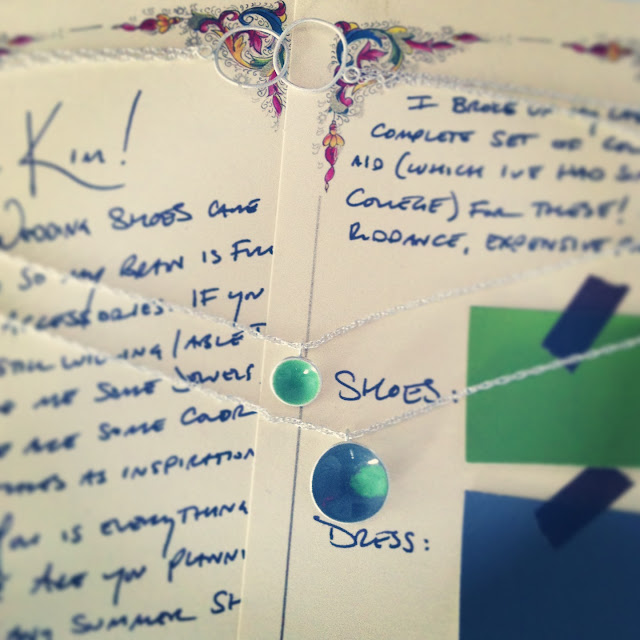 Kim!
Wedding shoes came
so my brain is ful
accessories. If you
still willing/able t
me some jewels
are some color
as inspiration
is everything
are you planni
summer sh
I broke up my
complete set of
aid (which I've had
college) for these!
riddance, expensive
Shoes:
Dress: